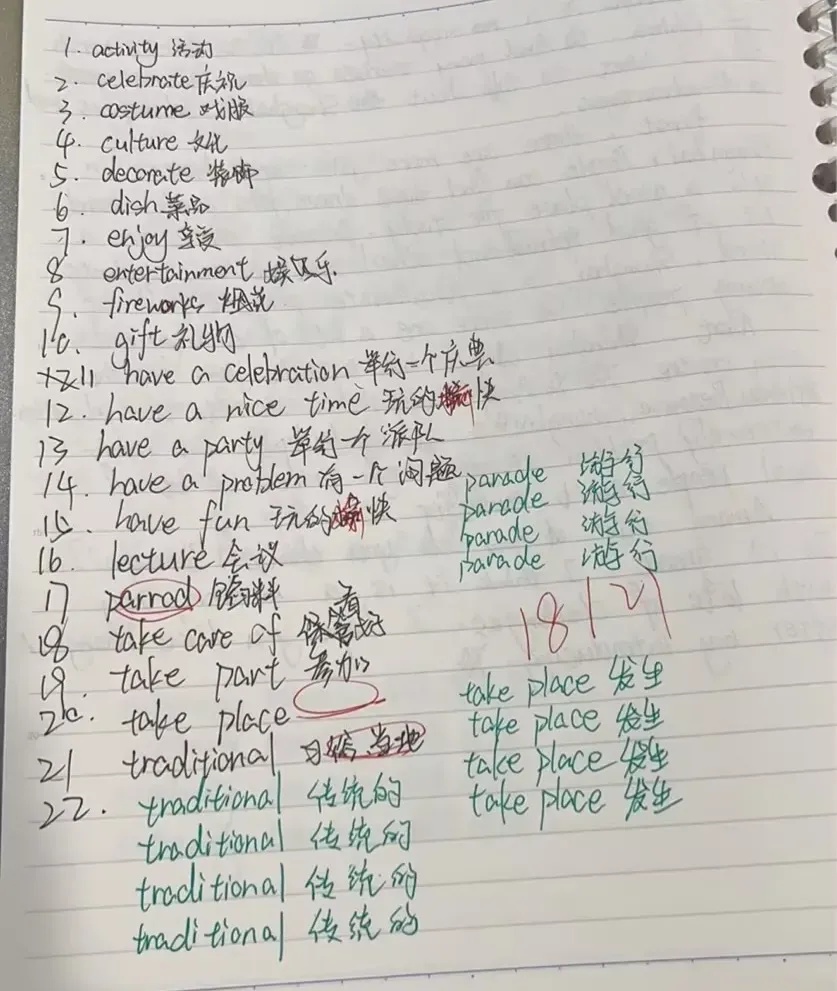 1. activity 活动
2. celebrate 庆祝
3. costume 戏服
4. culture 文化
5. decorate 装饰
6. dish 菜品
7. enjoy 享受
8 entertainment 娱乐.
9. fireworks 烟花
10. gift 礼物
11 have a celebration 举行一个庆典
12. have a nice time 玩的愉快
13 have a party 举行一个派队
14. have a problem 有一个问题
15. have fun 玩的愉快
16. lecture 会议
17 parrod
18 take care of 保管 看
19. take part 参加
20. take place
21 traditional 当地
22. traditional 传统的
traditional 传统的
traditional 传统的
traditional 传统的
parade 游行
parade 游行
parade 游行
parade 游行
18 | 21
take place 发生
take place 发生
take place 发生
take place 发生